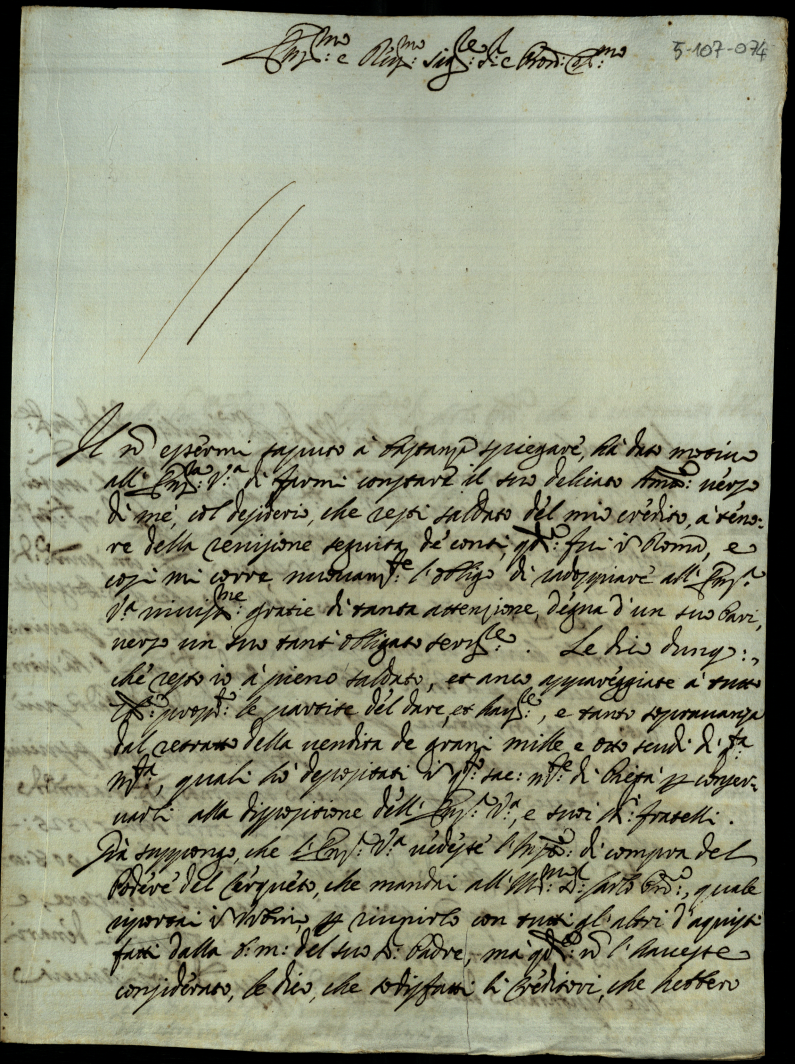 5-107-074
Em:mo e Rev:mo Sig:re Sig:r e Pron: Col:mo
Il nō essermi saputo à bastanza spiegare, hà dato motivo
all' Em:za V:a di farmi constare il suo delicato Amo: verso
di me, col desiderio, che resti saldato del mio credito, à teno-
re della revisione seguita de' conti, qdo: fui in Roma, e
così mi corre nuovam:te l'obligo di radoppiare all' Em:
V:a vivissme: gratie di tanta attenzione, degna d'un suo Pari,
verso un suo tant' obligato serv:re. Le dico dunq:,
che resto io à pieno saldato, et anco appareggiate à tutto
le partite del dare, et hav:e, e tanto sopravanza
dal retratto della vendita de grani mille e otto scudi di
m:ta, quali hò depositati in q:to sac: m:te di Pietà p conser-
varli alla dispositione dell' Em: V:a, e suoi SS:i fratelli.
Già suppongo, che l' Em: V:a vedesse l'Instro: di compra del
Podere del Cerqueto, che mandai all' Ill:mo S: Carlo quale
riportai in Urbino, p riunirlo con tutti gl'altri d'aquisti
fatti dalla b: m: del suo S: Padre, mà qdo: nō l'havesse
considerato, le dico, che sodisfatti li Creditori, che hebbero